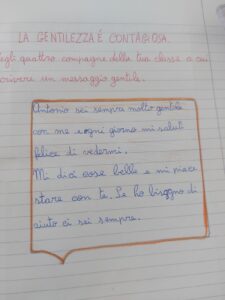 LA GENTILEZZA É CONTAGIOSA.
egli quattro compagne della tua classe a cui
crivere un messaggio gentile.
Antonio sei sempre molto gentile
con me e ogni giorno mi saluti
felice di vedermi.
Mi dici cose belle e mi piace
stare con te. Se ho bisogno di
aiuto ci sei sempre.